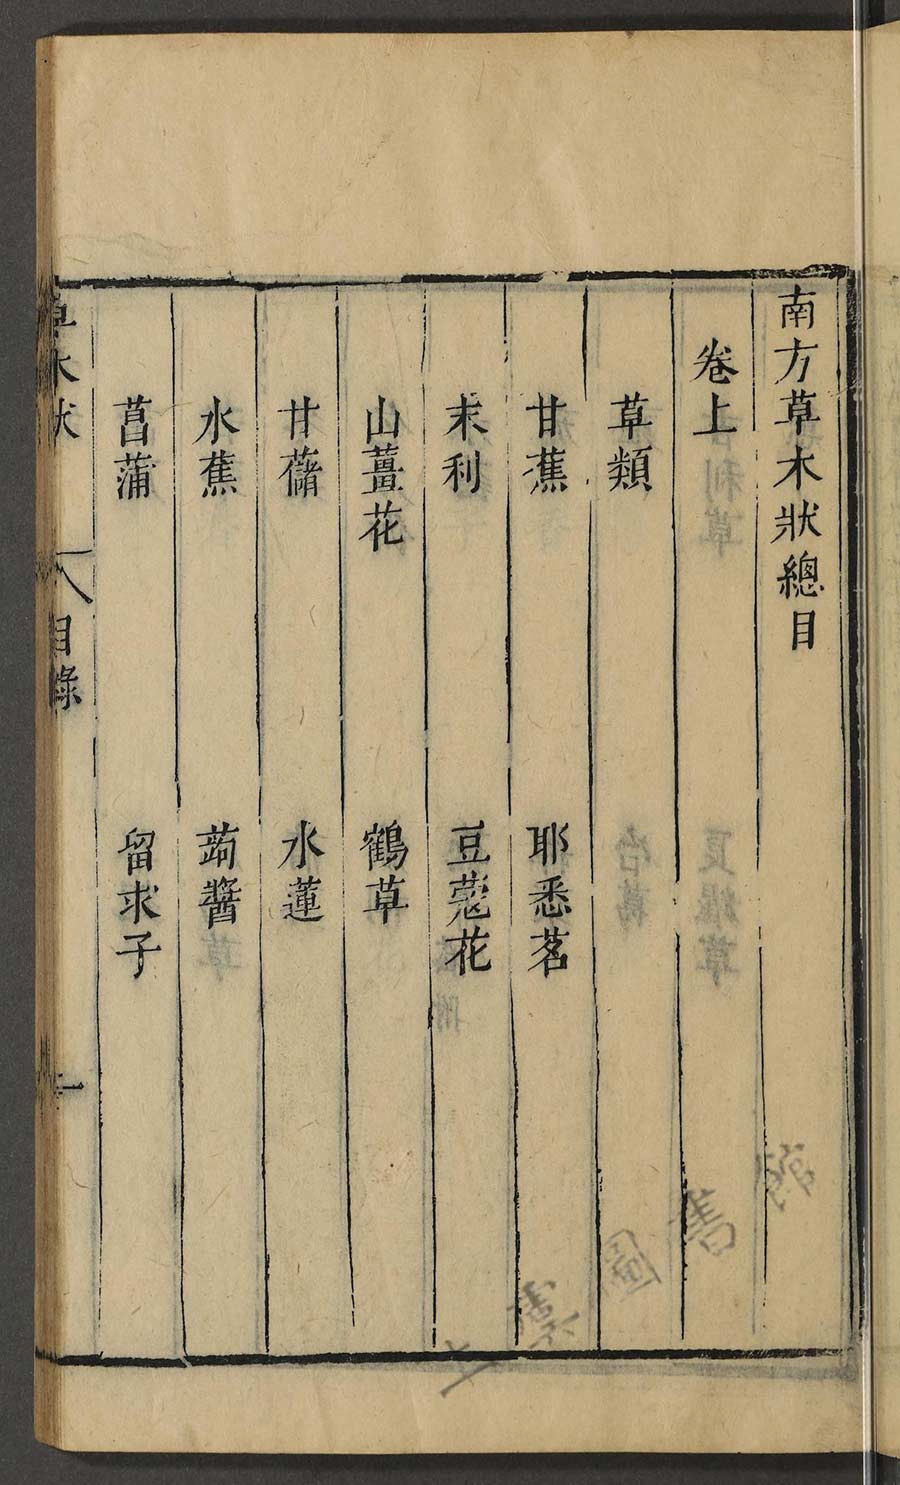 南方草木狀總目
卷上
草類
甘蕉　耶悉茗
末利　豆蔻花
山薑花　鶴草
甘藷　水蓮
水蕉　蒟醬
菖蒲　留求子
草木狀　目錄　一